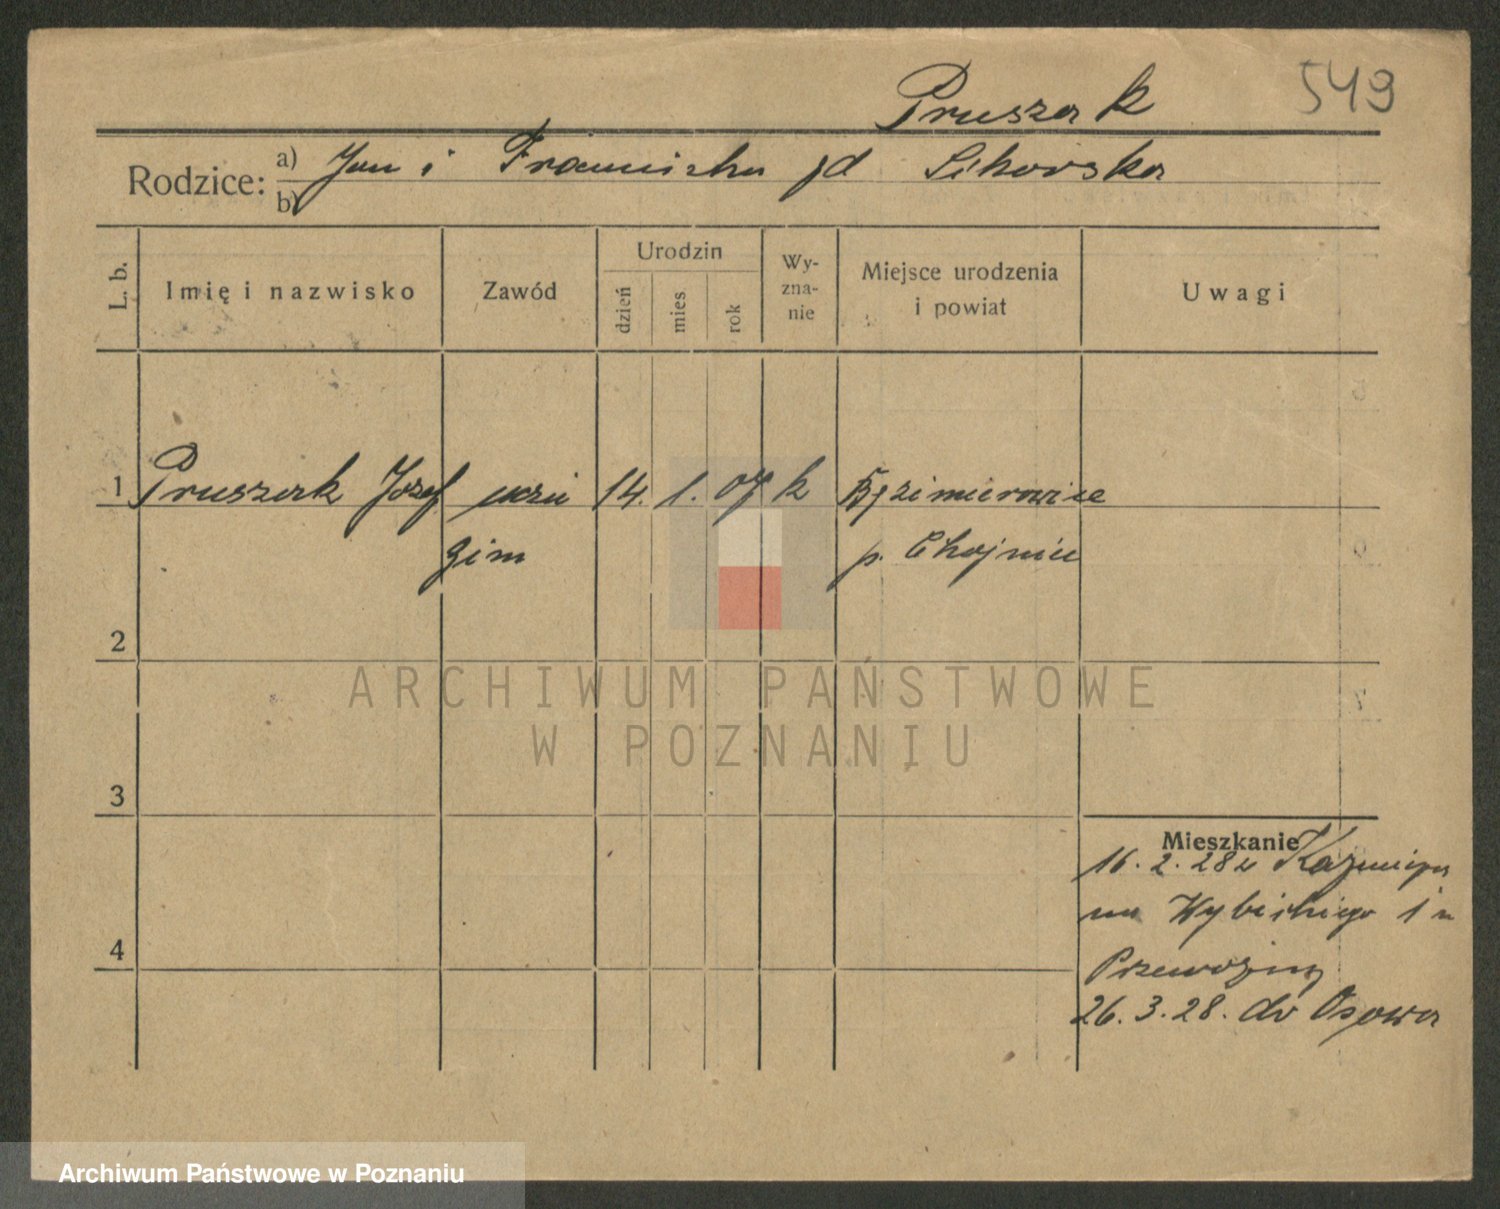 549
Pruszak
Rodzice: a) Jan i Franciszka zd Sikorska
b)
L. b. Imię i nazwisko Zawód Urodzin dzień mies rok Wyznanie Miejsce urodzenia i powiat Uwagi
1 Pruszak Józef uczń 14. 1. 07 k
gim p. Chojnice
2
3
4
Mieszkanie
16. 2. 28 z
Wybickiego 1 u
26. 3. 28. do Osowa
ARCHIWUM PAŃSTWOWE
W POZNANIU
Archiwum Państwowe w Poznaniu